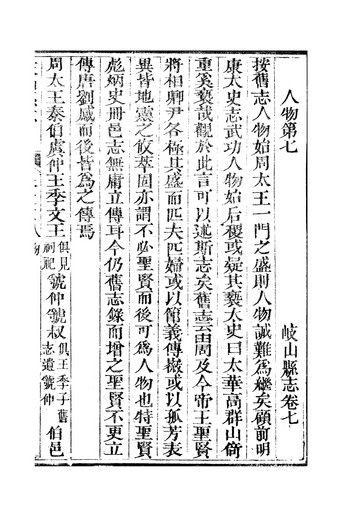 岐山縣志卷七
人物第七
按舊志人物始周太王一門之盛則人物誠難為繼矣顧前明
康太史志武功人物始后稷或疑其褻太史曰太華高群山倚
重奚褻哉觀於此言可以述斯志矣舊志云由周及今帝王聖賢
將相卿尹各極其盛而匹夫匹婦或以節義傳徽或以孤芳表
異皆地靈之攸萃固亦謂不必聖賢而後可為人物也特聖賢
彪炳史冊邑志無庸立傳耳今仍舊志錄而增之聖賢不更立
傳唐劉感而後皆為之傳焉
周太王泰伯虞仲王季文王俱見祠祀虢仲虢叔俱王季子舊志遺虢仲伯邑